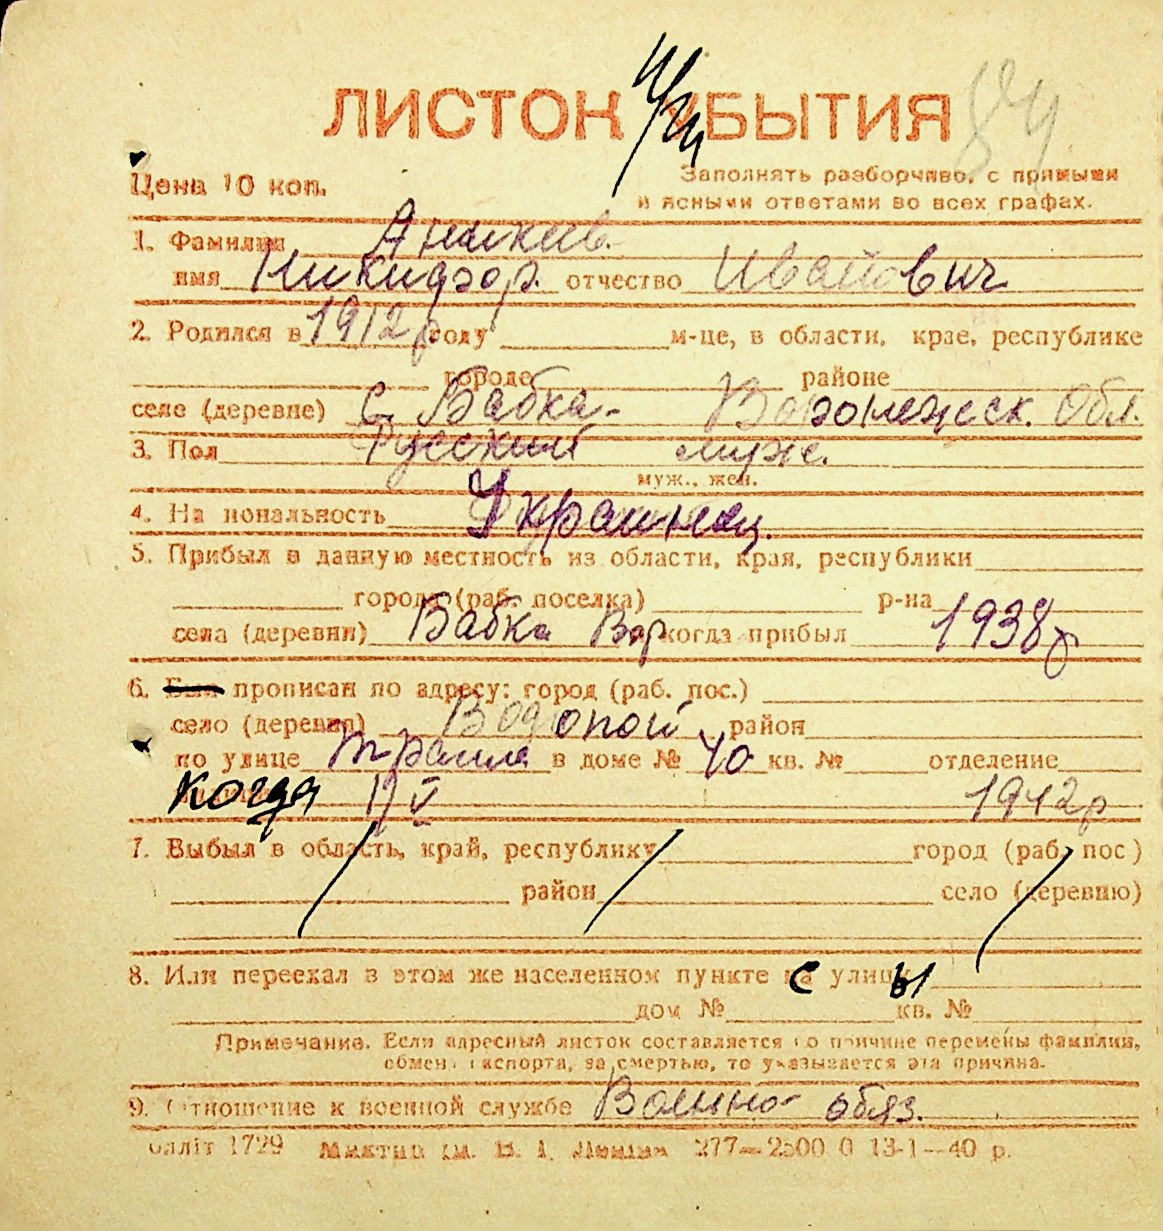 ЛИСТОК УБЫТИЯ
Цена 10 коп.
Заполнять разборчиво, с прямыми
и ясными ответами во всех графах.
1. Фамилия Аникеев.
имя Никифор. отчество Иванович
2. Родился в 1912 году м-це, в области, крае, республике
городе районе
селе (деревне) с. Бабка. Воронежск. обл.
3. Пол Русский муж.
муж., жен.
4. На иональность Украинец.
5. Прибыл в данную местность из области, края, республики
города (раб. поселка) р-на
села (деревни) Бабка Вор когда прибыл 1938 г
6. прописан по адресу: город (раб. пос.)
село (деревня) Водопой район
по улице в доме № 40 кв. № отделение
когда 17 V 1942 г
7. Выбыл в область, край, республику город (раб. пос)
район село (деревню)
8. Или переехал в этом же населенном пункте с улицы
дом № кв. №
Примечание. Если адресный листок составляется по причине перемены фамилии,
обмена паспорта, за смертью, то указывается эта причина.
9. Отношение к военной службе Воинно-обяз.
блліт 1729 277—2500 0 13-1—40 р.